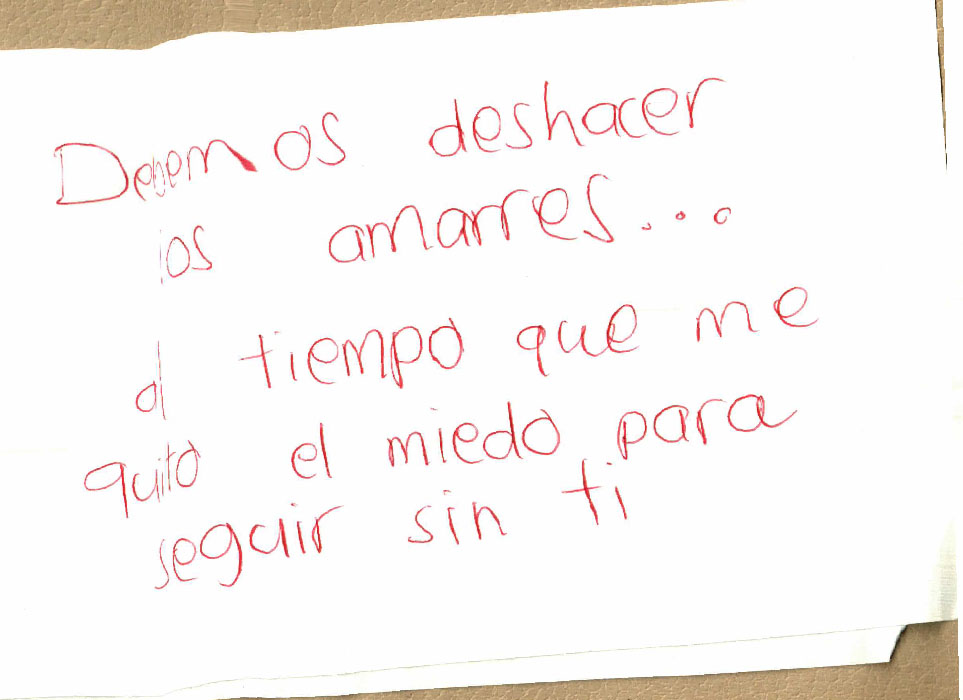 Debemos deshacer
los amarres...
al tiempo que me
quito el miedo para
seguir sin ti